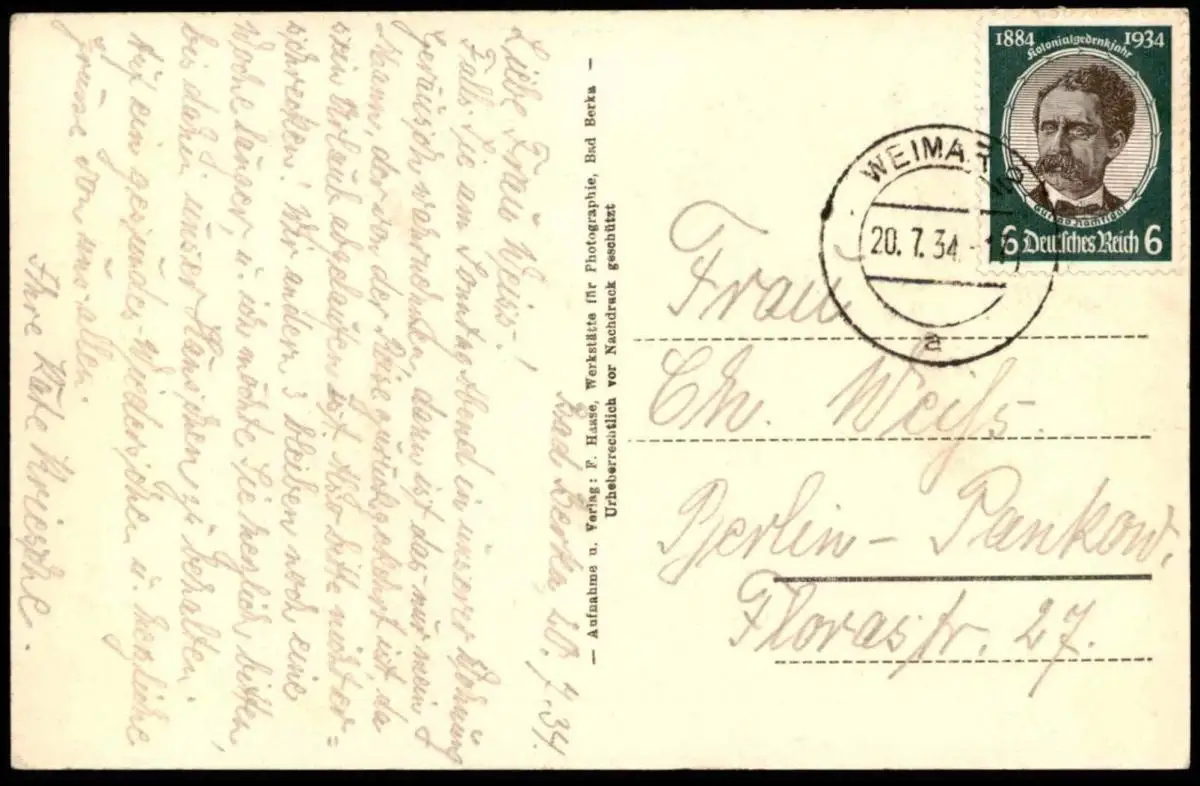 Bad Berka, 20.7.34.
Liebe Frau Weiss!
Falls Sie am Sonntag Abend in unserer Wohnung
Geräusch wahrnehmen, dann ist das nur mein
Mann, der von der Reise zurückgekehrt ist da
sein Urlaub abgelaufen ist. Also bitte nicht er=
schrecken! Wir andern 3 bleiben noch eine
Woche länger, u. ich möchte Sie herzlich bitten,
bis dahin unser Hänschen zu behalten.
Auf ein gesundes Wiedersehen u. herzliche
Grüsse von uns allen.
Ihre Käte
— Aufnahme u. Verlag: F. Haase, Werkstätte für Photographie, Bad Berka —
Urheberrechtlich vor Nachdruck geschützt
1884 1934
Kolonialgedenkjahr
6 Deutsches Reich 6
WEIMAR
20.7.34
a
Frau
Ch. Weiß
Berlin - Pankow.
Florastr. 27.